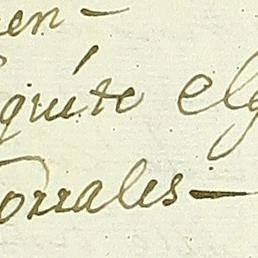 en-
quite el
orrales-